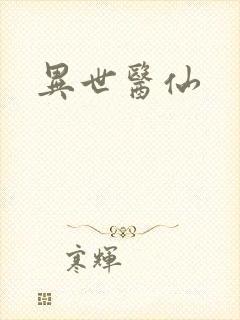 異世醫仙
寒輝